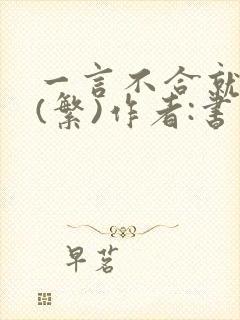 一言不合就
(繁)作者:書
早茗